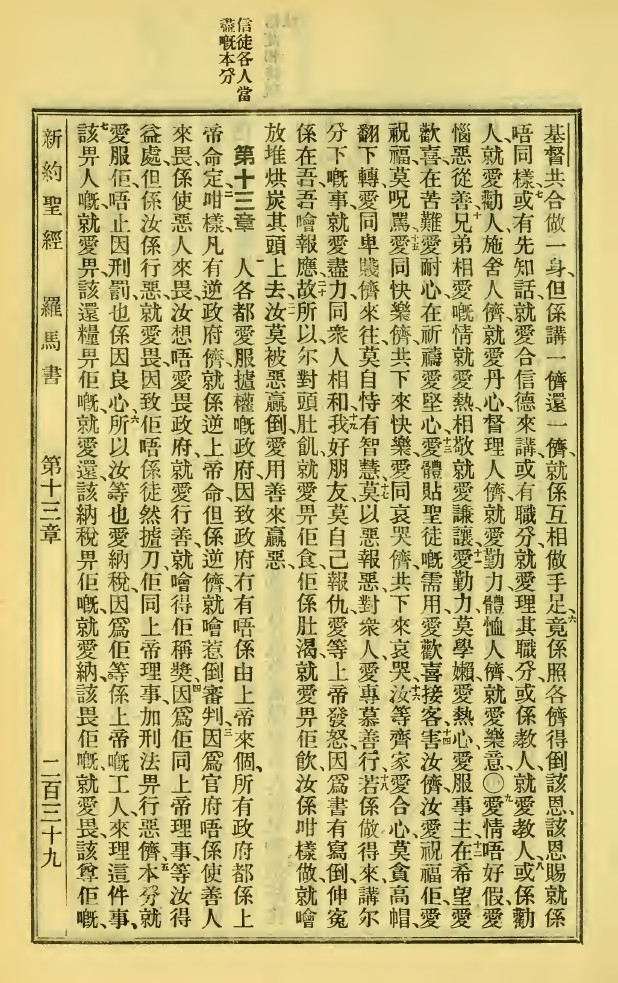 信徒各人當
盡嘅本分
基督共合做一身、但係講一儕還一儕、就係互相做手足、六竟係照各儕得倒該恩、該恩賜就係
唔同樣、七或有先知話、就愛合信德來講、或有職分、就愛理其職分、或係教人、就愛教人、八或係勸
人、就愛勸人、施舍人儕、就愛丹心、督理人儕、就愛勤力、體恤人儕、就愛樂意、〇九愛情唔好假、愛
惱惡從善、十兄弟相愛嘅情就愛熱、相敬就愛謙讓、十一愛勤力莫學嬾、愛熱心、愛服事主、十二在希望愛
歡喜、在苦難愛耐心、在祈禱愛堅心、十三愛體貼聖徒嘅需用、愛歡喜接客、十四害汝儕汝愛祝福佢、愛
祝福莫呪罵、十五愛同快樂儕共下來快樂、愛同哀哭儕共下來哀哭、十六汝等齊家愛合心、莫貪高帽、
翻下轉愛同卑賤儕來往、莫自恃有智慧、十七莫以惡報惡、對衆人愛專慕善行、十八若係做得來、講尔
分下嘅事、就愛盡力同衆人相和、十九我好朋友、莫自己報仇、愛等上帝發怒、因爲書有寫倒、伸寃
係在吾、吾噲報應、二十故所以尔對頭肚飢、就愛畀佢食、佢係肚渴、就愛畀佢飲、汝係咁樣做、就噲
放堆烘炭其頭上去、二一汝莫被惡贏倒、愛用善來贏惡、
第十三章　一人各都愛服攎權嘅政府、因致政府冇有唔係由上帝來個、所有政府都係上
帝命定咁樣、二凡有逆政府儕、就係逆上帝命、但係逆儕就噲惹倒審判、三因爲官府唔係使善人
來畏、係使惡人來畏、汝想唔愛畏政府、就愛行善、就噲得佢稱獎、四因爲佢同上帝理事、等汝得
益處、但係汝係行惡、就愛畏、因致佢唔係徒然攎刀、佢同上帝理事、加刑法畀行惡儕、五本分就
愛服佢、唔止因刑罰、也係因良心、六所以汝等也愛納稅、因爲佢等係上帝嘅工人、來理這件事、
七該畀人嘅、就愛畀、該還糧畀佢嘅、就愛還、該納稅畀佢嘅、就愛納、該畏佢嘅、就愛畏、該尊佢嘅、
新約聖經　羅馬書　第十三章　二百三十九